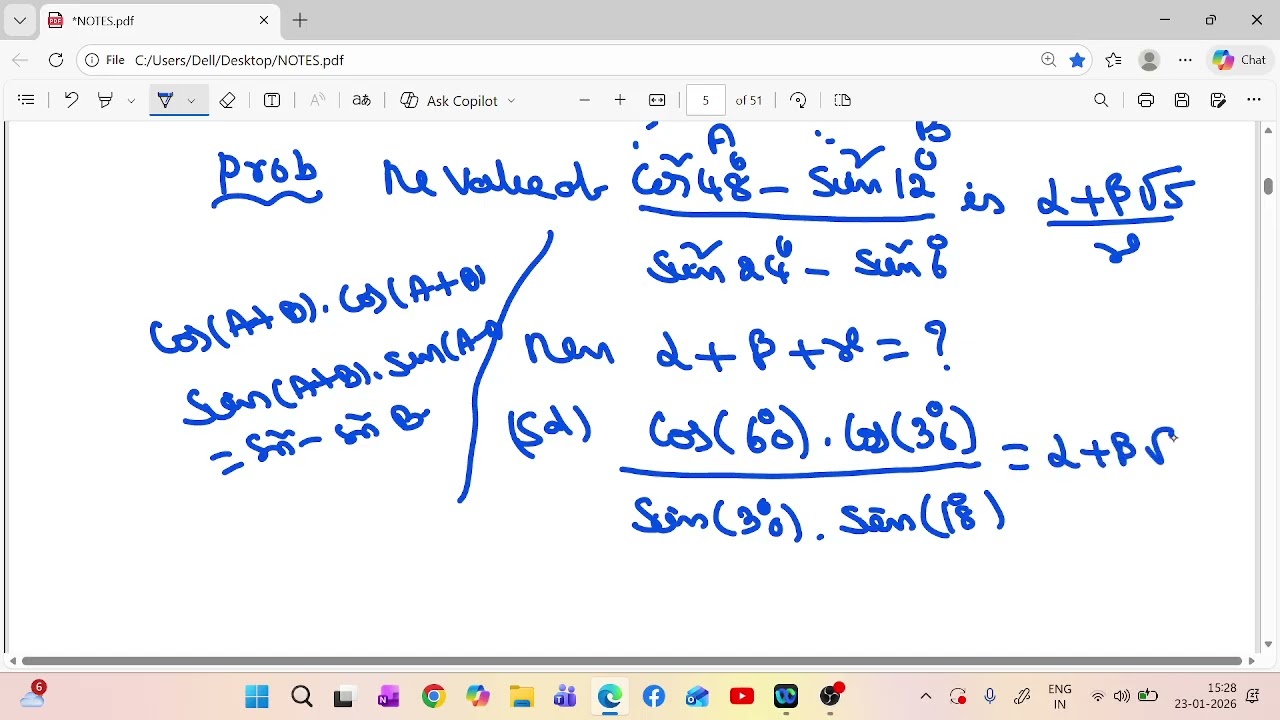 *NOTES.pdf
File C:/Users/Dell/Desktop/NOTES.pdf
Chat
Ask Copilot
5 of 51
A B
Prob The Value of Cos²48° - Sin²12° is α+β√5
Sin²24° - Sin²6° γ
Cos(A+B). Cos(A+B
Sin(A+B). Sin(A-
= Sin² - Sin² B
Then α + β + γ = ?
(Sol) Cos(60°). Cos(36°) = α+β√
Sin(30°). Sin(18°)
6
ENG
IN
15:28
23-01-2026